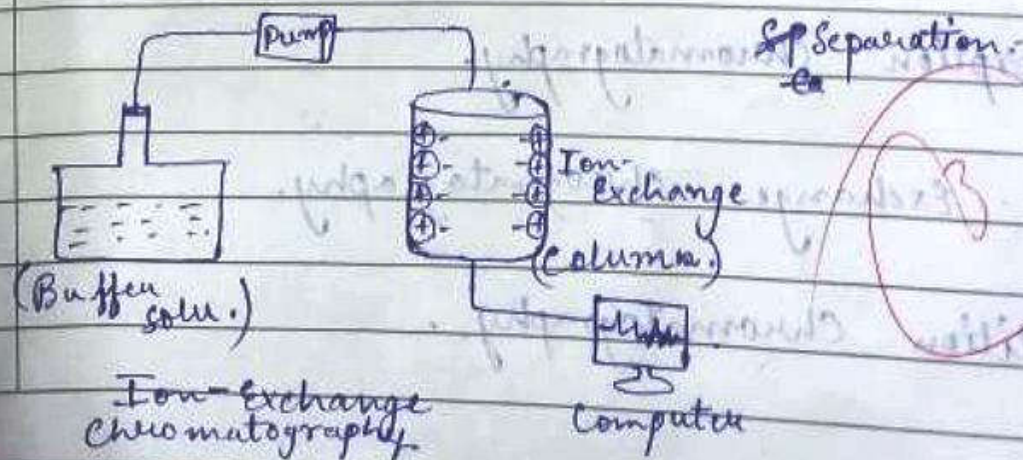 Pump
Sp Separation.-
Ion-
Exchange
(Column.)
(Buffer
Solu.)
Ion-Exchange
Chromatography.
Computer